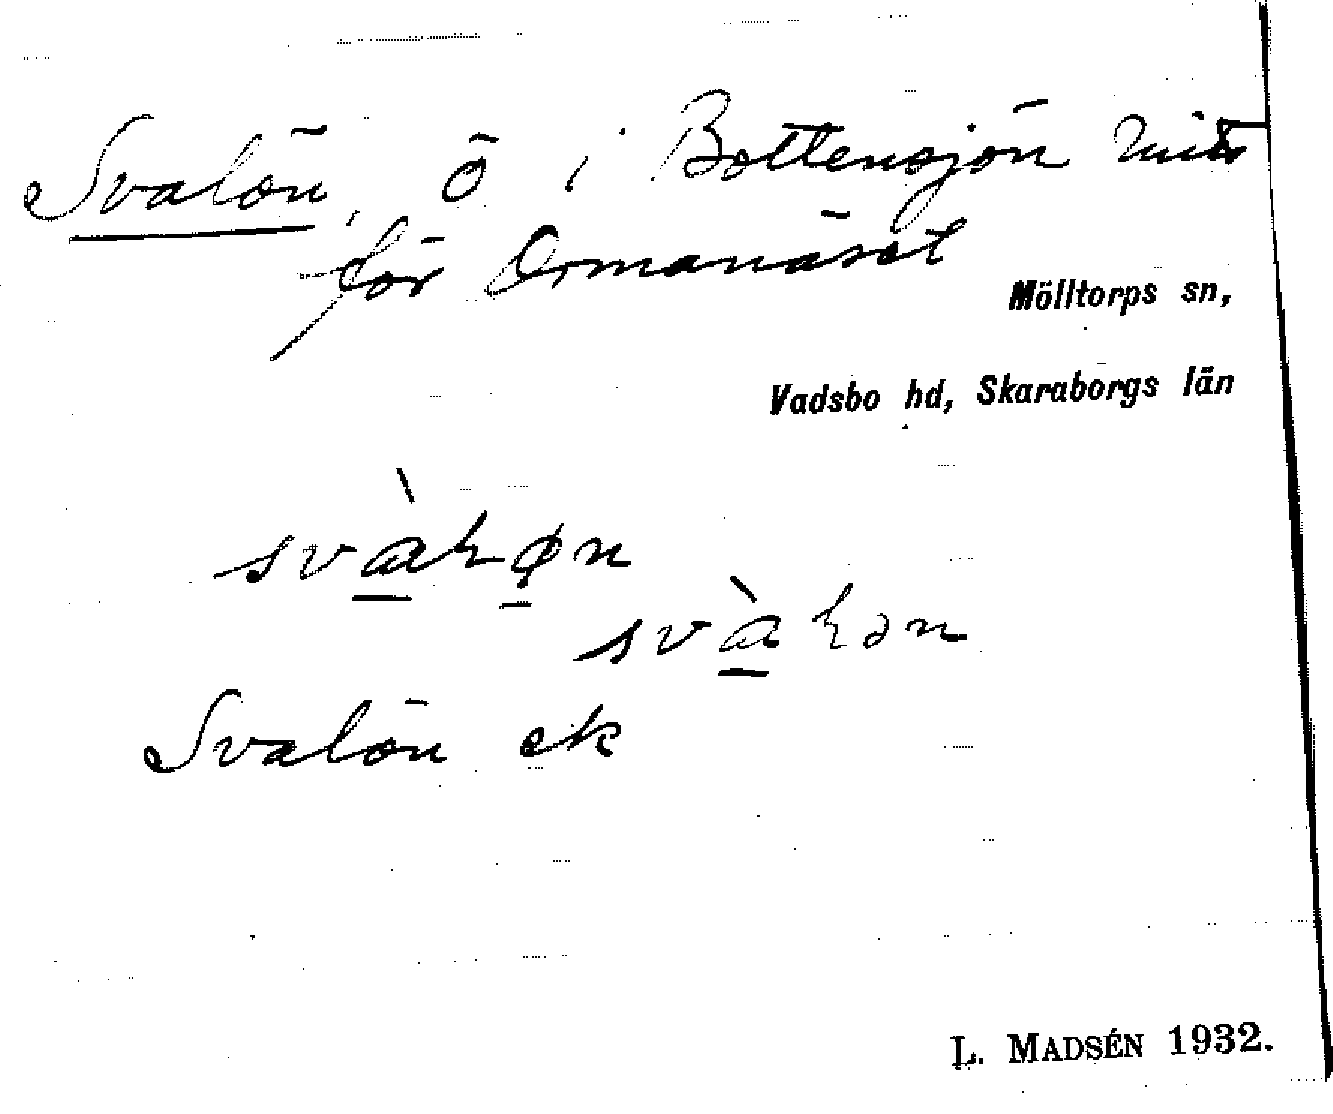 Svalön, ö i Bottensjön mitt
för Ormanäset
Mölltorps sn,
Vadsbo hd, Skaraborgs län
Svalön ek
L. MADSÉN 1932.